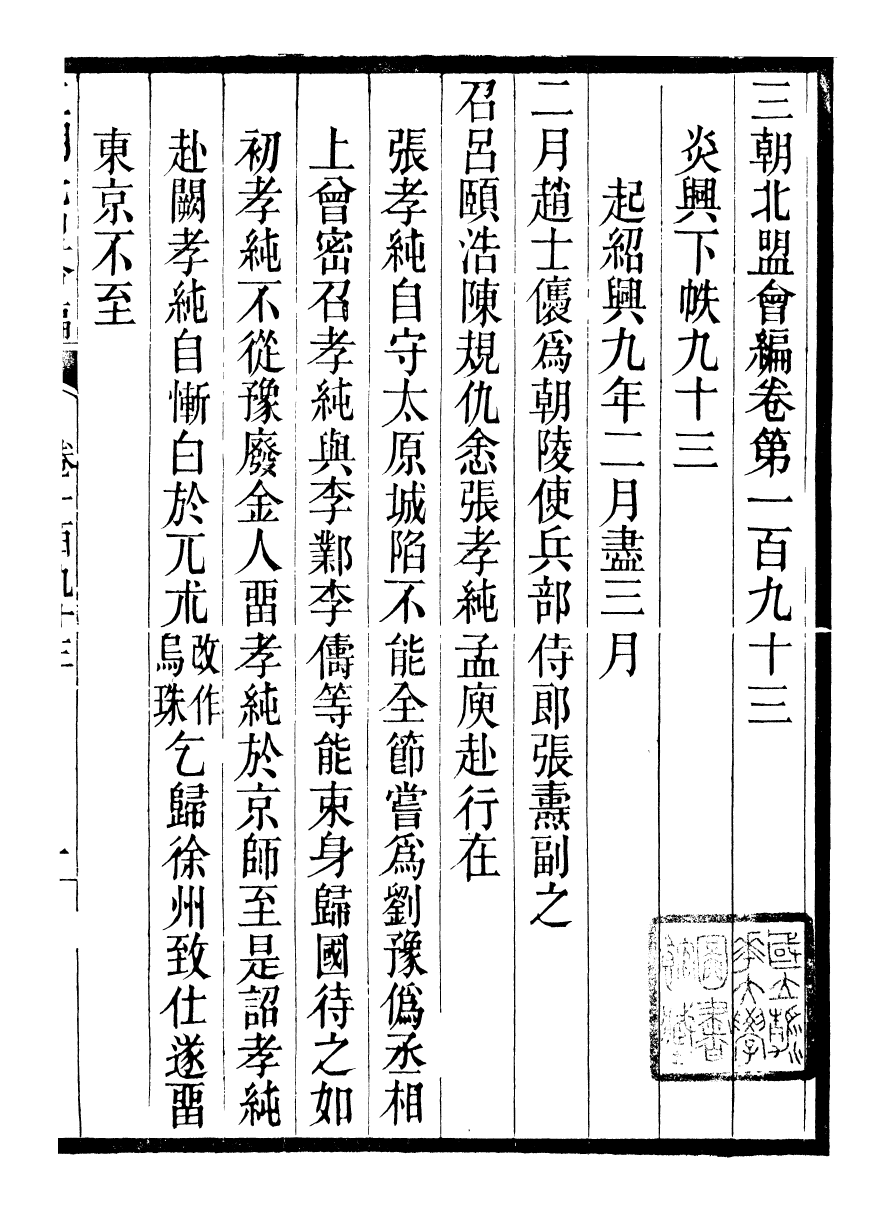 三朝北盟會編卷第一百九十三
炎興下帙九十三
起紹興九年二月盡三月
二月趙士㒟爲朝陵使兵部侍郎張燾副之
召呂頤浩陳規仇悆張孝純孟庾赴行在
張孝純自守太原城陷不能全節嘗爲劉豫僞丞相
上曾密召孝純與李鄴李儔等能束身歸國待之如
初孝純不從豫廢金人畱孝純於京師至是詔孝純
赴闕孝純自慚白於兀朮改作烏珠乞歸徐州致仕遂畱
東京不至
卷一百九十三